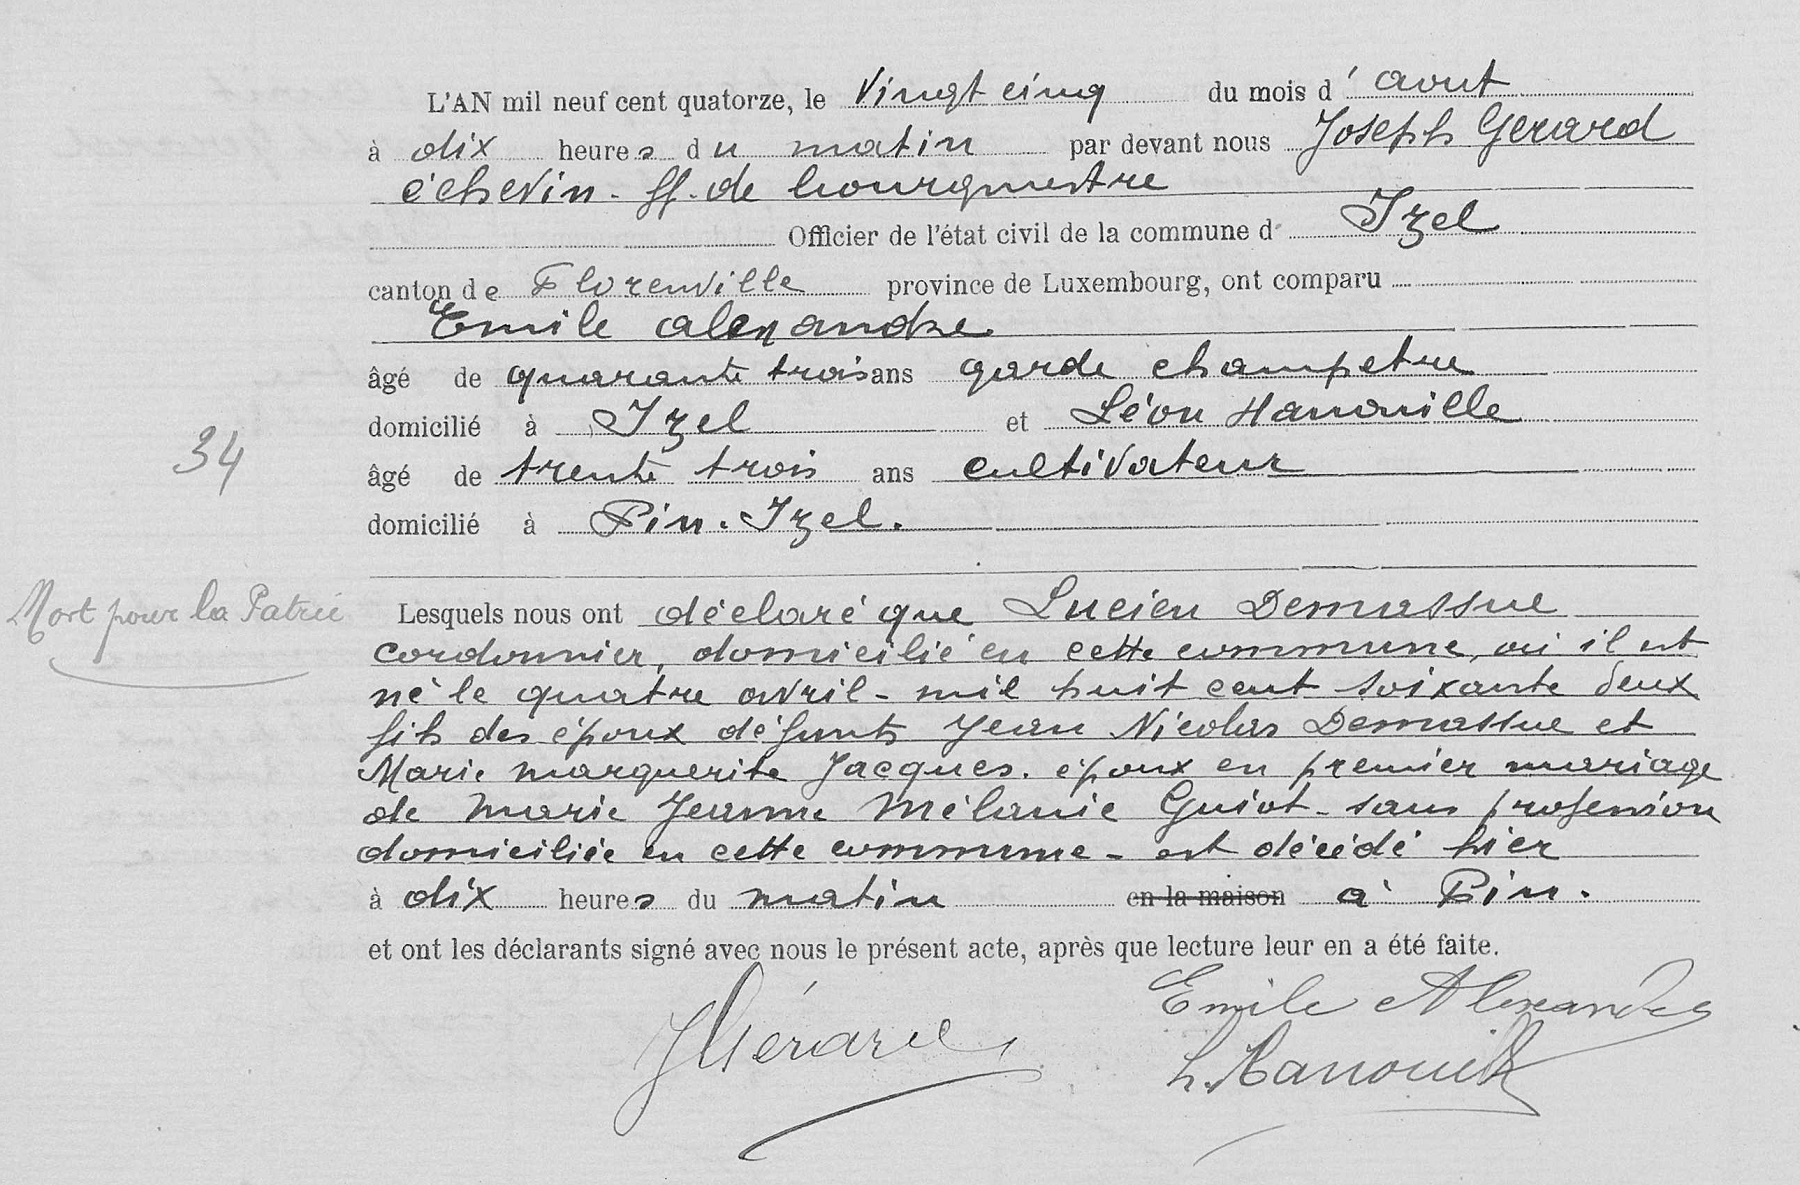 L'AN mil neuf cent quatorze, le vingt cinq du mois d' aout
à dix heures du matin par devant nous Joseph Gerard
échevin - ff. de bourgmestre
Officier de l'état civil de la commune d' Izel
canton de Florenville province de Luxembourg, ont comparu
Emile alexandre
âgé de quarante trois ans garde champetre
domicilié à Izel et Léon Hanouille
34
âgé de trente trois ans cultivateur
domicilié à Pin. Izel.
Mort pour la Patrie
Lesquels nous ont déclaré que Lucien Demassue
cordonnier, domicilié en cette commune, où il est
né le quatre avril - mil huit cent soixante deux
fils des époux défunts Jean Nicolas Demassue et
Marie marguerite Jacques. époux en premier mariage
de Marie Jeanne Mélanie Guiot - sans profession
domiciliée en cette commune - est décédé hier
à dix heures du matin en la maison à Pin.
et ont les déclarants signé avec nous le présent acte, après que lecture leur en a été faite.
Emile Alexandre
JGérard
L. Hanouille